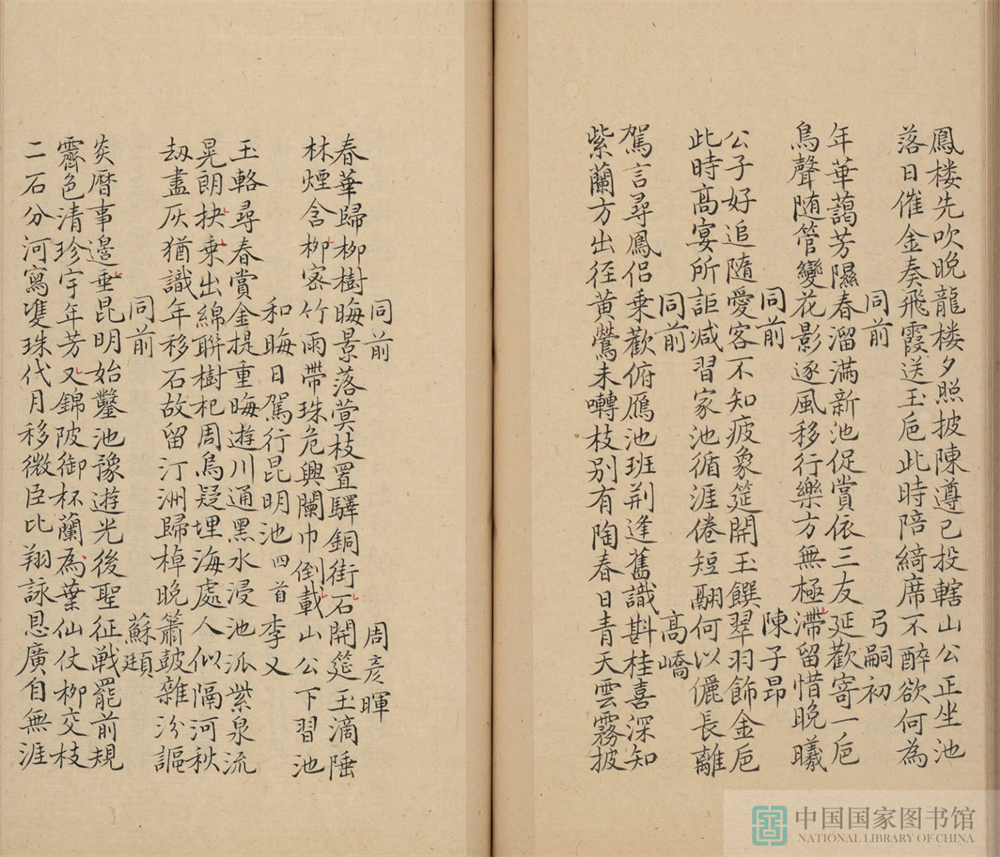 鳳楼先吹晚龍楼夕照披陳遵已投轄山公正坐池
落日催金奏飛霞送玉巵此時陪綺席不醉欲何為
同前 弓嗣初
年華藹芳隰春溜满新池促賞依三友延歡寄一巵
鳥聲随管變花影逐風移行樂方無極滯留惜晚曦
同前 陳子昂
公子好追隨愛客不知疲象筵開玉饌翠羽飾金巵
此時髙宴所詎减習家池循涯倦短翮何以儷長離
同前 髙嶠
駕言尋鳳侶乗歡俯鴈池班荆逢舊識斟桂喜深知
紫蘭方出径黄鶯未囀枝别有陶春日青天雲霧披
同前 周彦暉
春華歸栁樹晦景落蓂枝置驛銅街石開筵玉滴陲
林煙含栁宻竹雨帶珠危興闌巾倒載山公下習池
和晦日駕行昆明池四首 李乂
玉輅尋春賞金提重晦遊川通黑水浸池泒紫泉流
晃朗抉乗出綿聨樹杞周烏疑埋海處人似隔河秋
刼盡灰猶識年移石故留汀洲歸棹晩簫皷雜汾謳
同前 蘇頲
炎曆事邊垂昆明始鑿池豫遊光後聖征戦罷前規
霽色清珍宇年芳又錦陂御杯蘭為葉仙仗栁交枝
二石分河寫㕠珠代月移微臣比翔詠恩廣自無涯
中国国家图书馆
NATIONAL LIBRARY OF CHINA